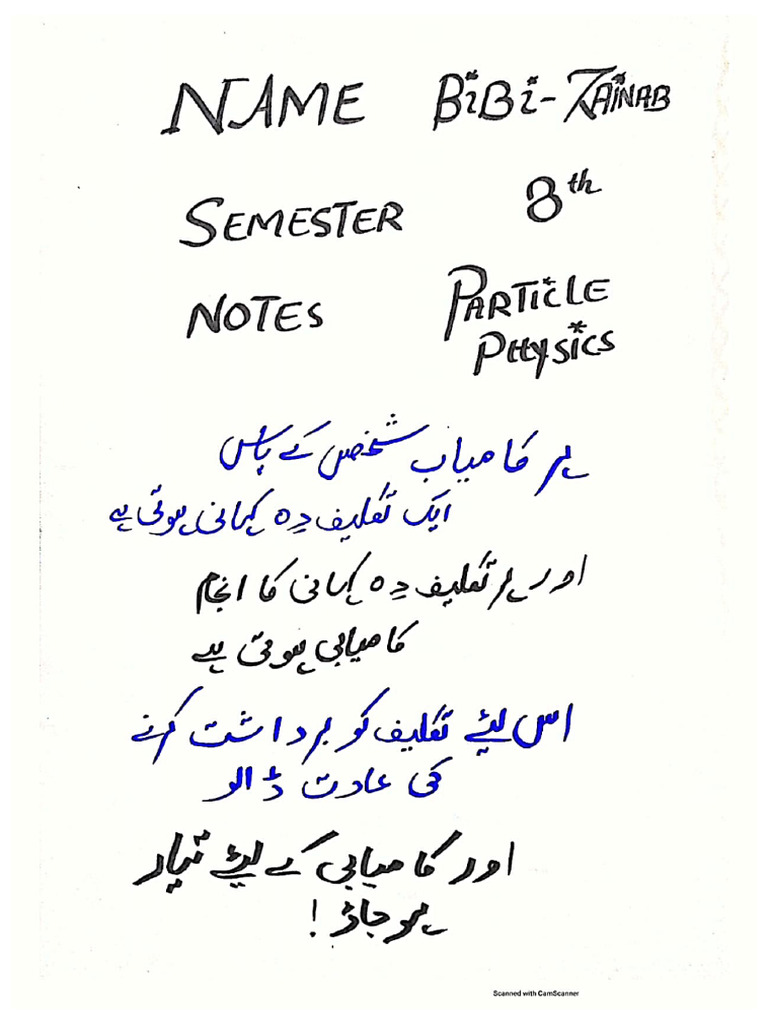 NAME BiBi-ZAiNAB
SEMESTER 8th
NOTES PARTiCLE
PHYSiCS
ہر کامیاب شخص کے پاس
ایک تکلیف دہ کہانی ہوتی ہے
اور ہر تکلیف دہ کہانی کا انجام
کامیابی ہوتی ہے
اس لیئے تکلیف کو برداشت کرنے
کی عادت ڈالو
اور کامیابی کے لیئے تیار
ہوجاؤ!
Scanned with CamScanner